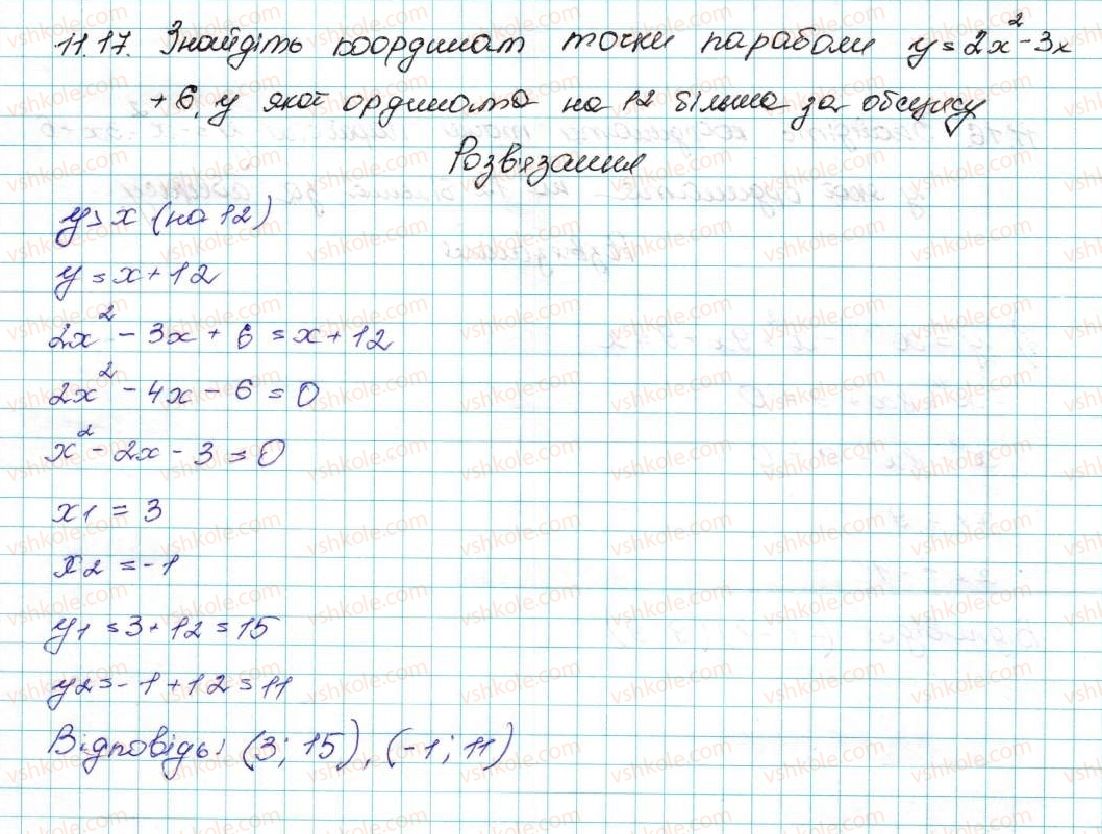 11.17. Знайдіть координат точки параболи y = 2x² - 3x
+ 6, у якої ордината на 12 більша за абсцису
Розв'язання
y > x (на 12)
y = x + 12
2x² - 3x + 6 = x + 12
2x² - 4x - 6 = 0
x² - 2x - 3 = 0
x1 = 3
x2 = -1
y1 = 3 + 12 = 15
y2 = -1 + 12 = 11
Відповідь: (3; 15), (-1; 11)